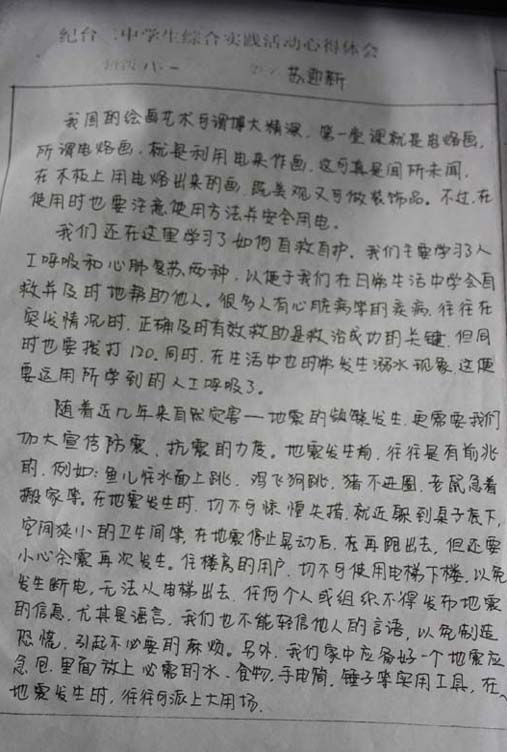 纪台二中学生综合实践活动心得体会
班级 八.一 姓名 苏迎新
我国的绘画艺术可谓博大精深。第一堂课就是电烙画，
所谓电烙画，就是利用电来作画，这可真是闻所未闻，
在木板上用电烙出来的画，既美观又可做装饰品。不过，在
使用时也要注意使用方法并安全用电。
我们还在这里学习了如何自救自护。我们主要学习了人
工呼吸和心肺复苏两种，以便于我们在日常生活中学会自
救并及时地帮助他人。很多人有心脏病等的疾病，往往在
突发情况时，正确及时有效救助是救治成功的关键，但同
时也要拨打120。同时，在生活中也时常发生溺水现象，这便
要运用所学到的人工呼吸了。
随着近几年来自然灾害一地震的频繁发生，更需要我们
加大宣传防震、抗震的力度。地震发生前，往往是有前兆
的，例如：鱼儿往水面上跳，鸡飞狗跳，猪不进圈，老鼠急着
搬家等。在地震发生时，切不可惊惶失措，就近躲到桌子底下，
空间狭小的卫生间等，在地震停止晃动后，在再跑出去，但还要
小心余震再次发生。住楼房的用户，切不可使用电梯下楼，以免
发生断电，无法从电梯出去，任何个人或组织不得发布地震
的信息，尤其是谣言，我们也不能轻信他人的言语，以免制造
恐慌，引起不必要的麻烦。另外，我们家中应备好一个地震应
急包，里面放上必需的水、食物，手电筒，锤子等实用工具，在
地震发生时，往往可派上大用场。